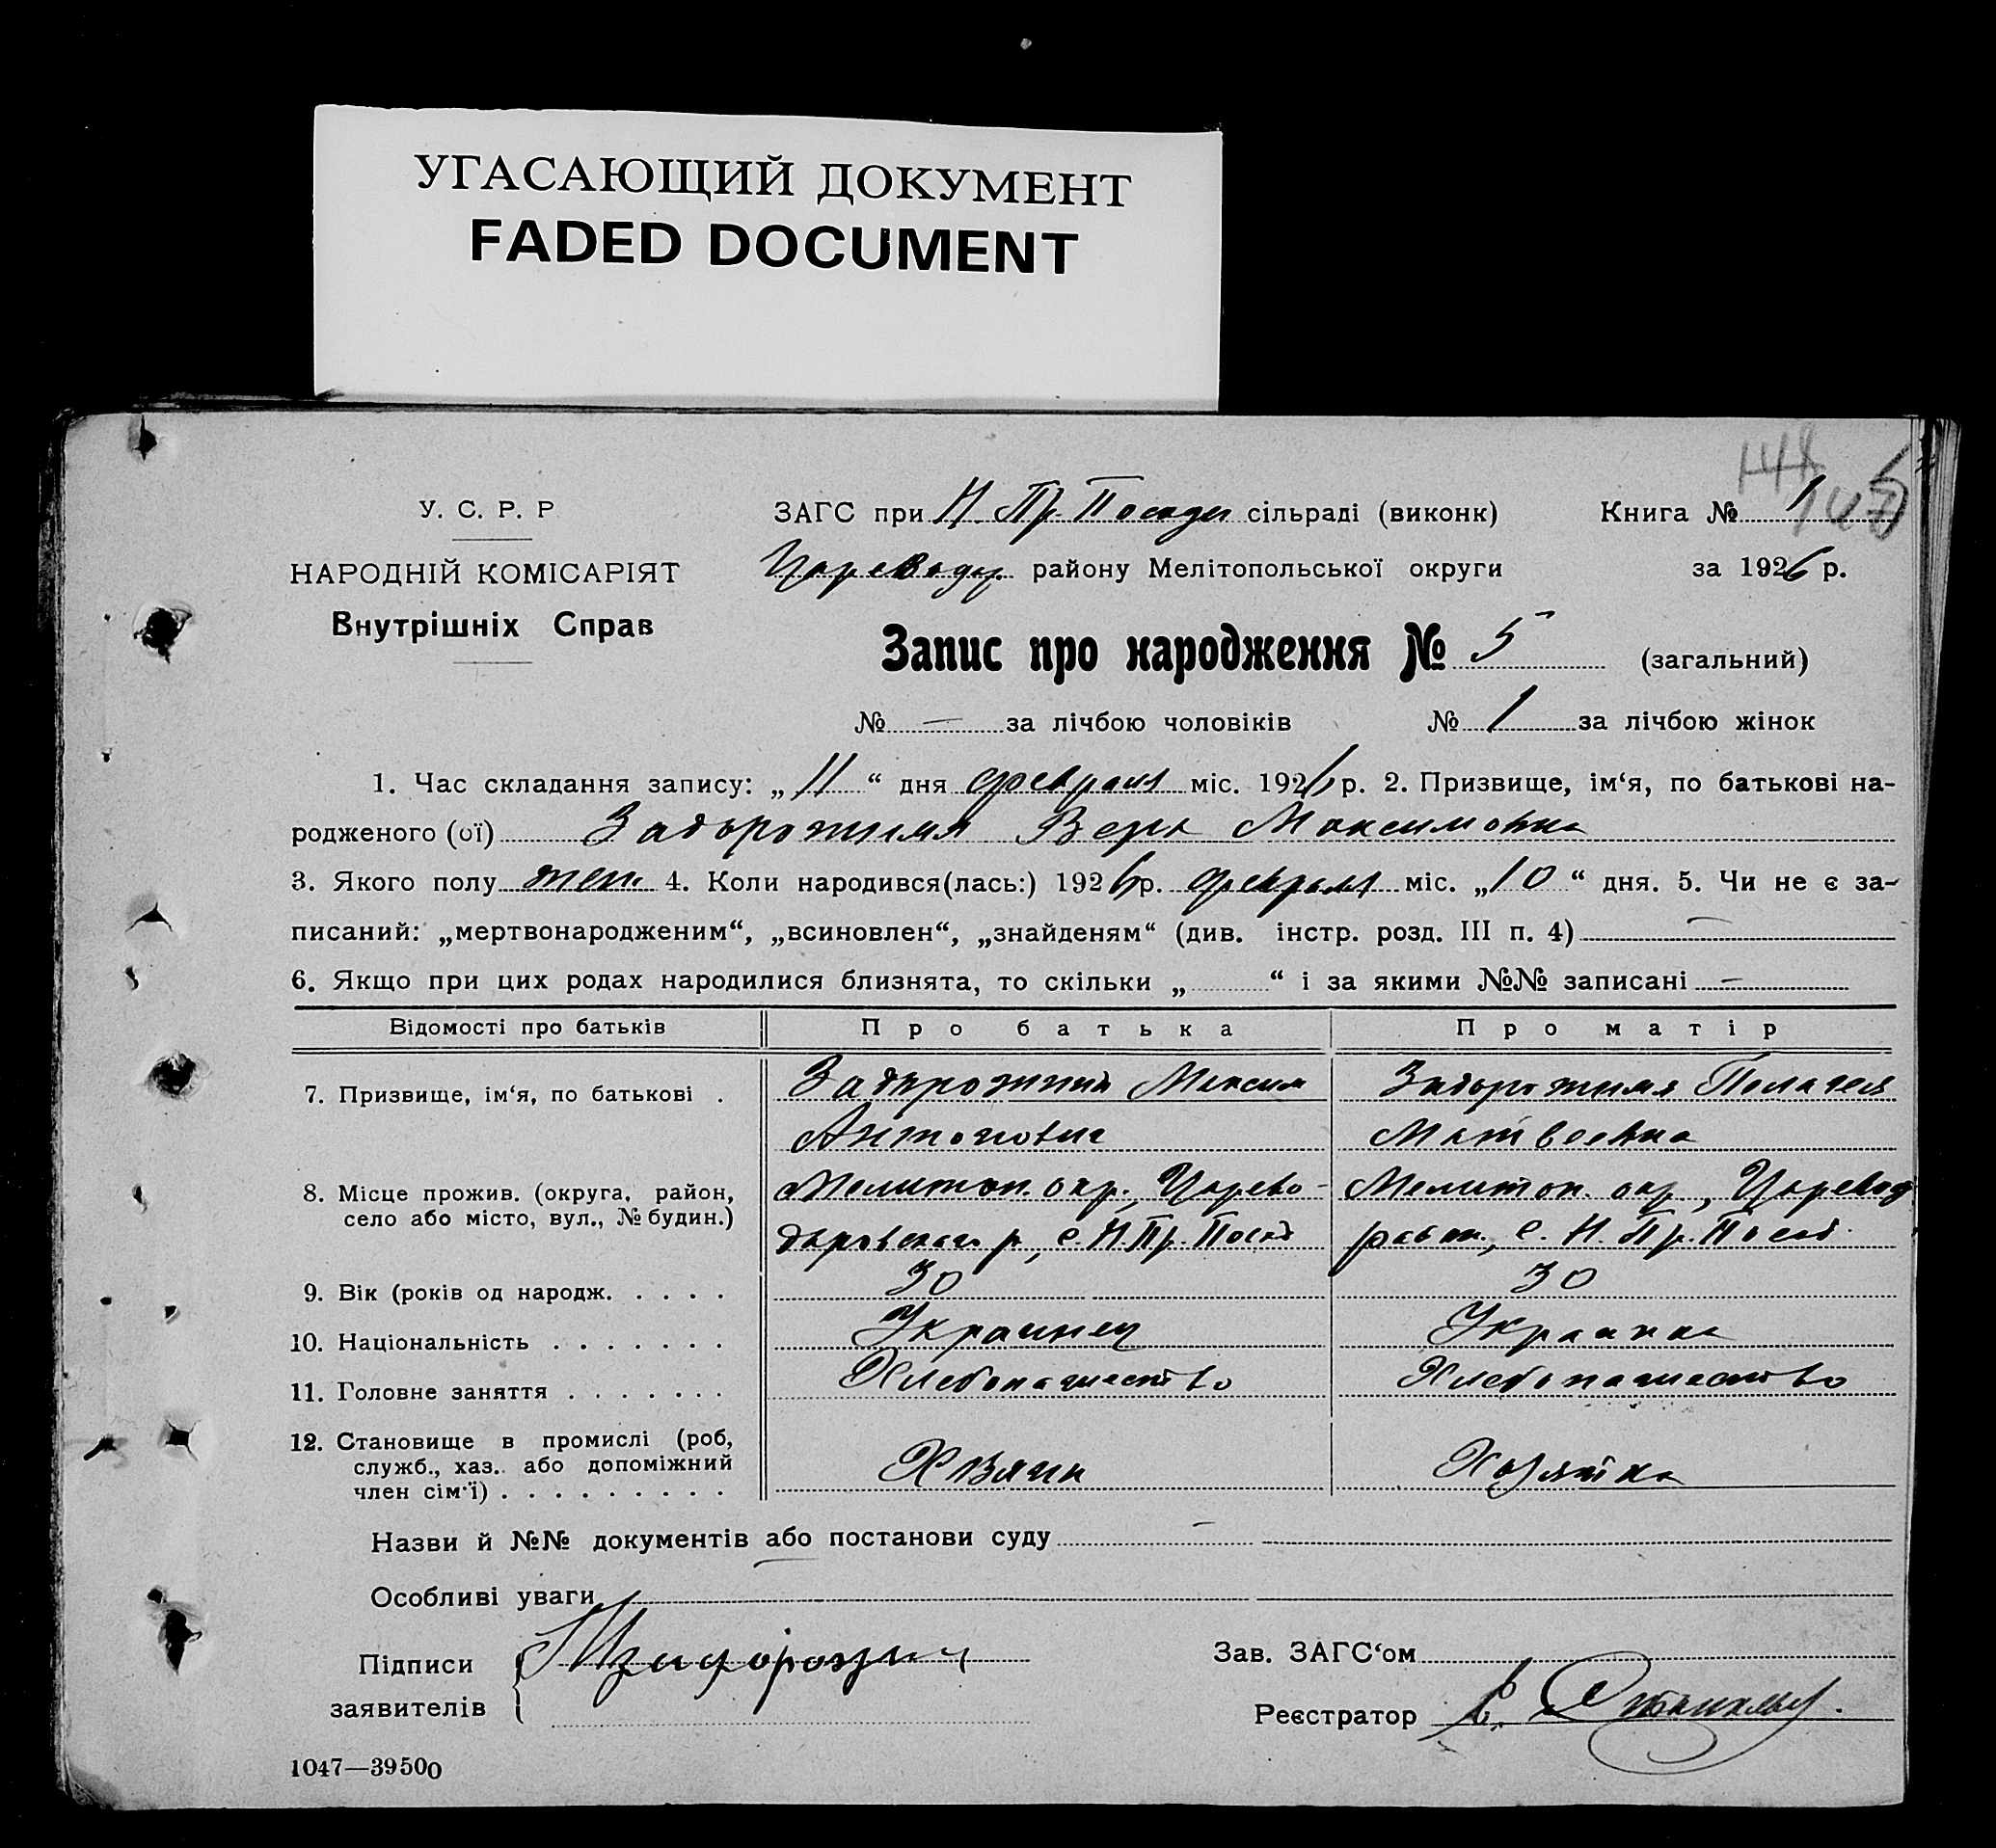 УГАСАЮЩИЙ ДОКУМЕНТ
FADED DOCUMENT
У. С. Р. Р
НАРОДНІЙ КОМІСАРІЯТ
Внутрішніх Справ
ЗАГС при Н. Пр. Посади сільраді (виконк)
Цареводар. району Мелітопольської округи
Книга № 1
за 1926 р.
Запис про народження № 5 (загальний)
№ — за лічбою чоловіків № 1 за лічбою жінок
1. Час складання запису: „11“ дня февраля міс. 1926 р. 2. Призвище, ім‘я, по батькові на-
родженого (ої) Задорожняя Вера Максимовна
3. Якого полу жен. 4. Коли народився(лась:) 1926 р. февраля міс. „10“ дня. 5. Чи не є за-
писаний: „мертвонародженим“, „всиновлен“, „знайденям“ (див. інстр. розд. III п. 4) —
6. Якщо при цих родах народилися близнята, то скільки „ “ і за якими №№ записані —
Відомості про батьків Про батька Про матір
7. Призвище, ім‘я, по батькові . Задорожний Максим Задорожняя Пелагея
Антонович Матвеевна
8. Місце прожив. (округа, район, Мелитоп. окр., Царево- Мелитоп. окр., Царевод
село або місто, вул., № будин.) даровского р, с. Н. Пр. Посад район., с. Н. Пр. Посад
9. Вік (років од народж. . . . . 30 30
10. Національність . . . . . . . Украинец Украинка
11. Головне заняття . . . . . . . Хлебопашество Хлебопашество
12. Становище в промислі (роб,
служб., хаз. або допоміжний Хозяин Хозяйка
член сім‘ї) . . . . . . . . .
Назви й №№ документів або постанови суду —
Особливі уваги —
Підписи
заявителів
Зав. ЗАГС‘ом
Реєстратор
1047—39500